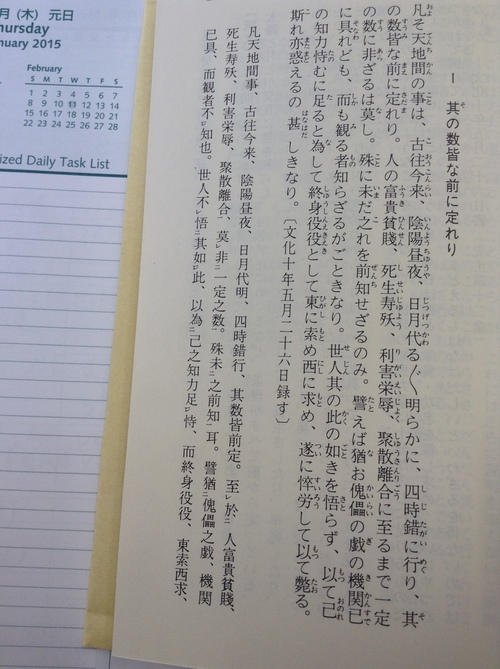 月 (木) 元日
ursday
nuary 2015
February
S M T W T F S
1 2 3 4 5 6 7
8 9 10 11 12 13 14
15 16 17 18 19 20 21
22 23 24 25 26 27 28
ized Daily Task List
一 其の数皆な前に定れり
凡そ天地間の事は、古往今来、陰陽昼夜、日月代る〱明らかに、四時錯に行り、其
の数皆な前に定れり。人の富貴貧賤、死生寿殀、利害栄辱、聚散離合に至るまで一定
の数に非ざるは莫し。殊に未だ之れを前知せざるのみ。譬えば猶お傀儡の戯の機関已
に具れども、而も観る者知らざるがごときなり。世人其の此の如きを悟らず、以て己
の知力恃むに足ると為して終身役役として東に索め西に求め、遂に悴労して以て斃る。
斯れ亦惑えるの甚しきなり。〔文化十年五月二十六日録す〕
凡天地間事、古往今来、陰陽昼夜、日月代明、四時錯行、其数皆前定。至㆑於㆓人富貴貧賤、
死生寿殀、利害栄辱、聚散離合、莫㆑非㆓一定之数㆒。殊未㆓之前知㆒耳。譬猶㆓傀儡之戯、機関
已具、而観者不㆑知也。世人不㆑悟㆓其如㆑此、以為㆓己之知力足㆑恃、而終身役役、東索西求、